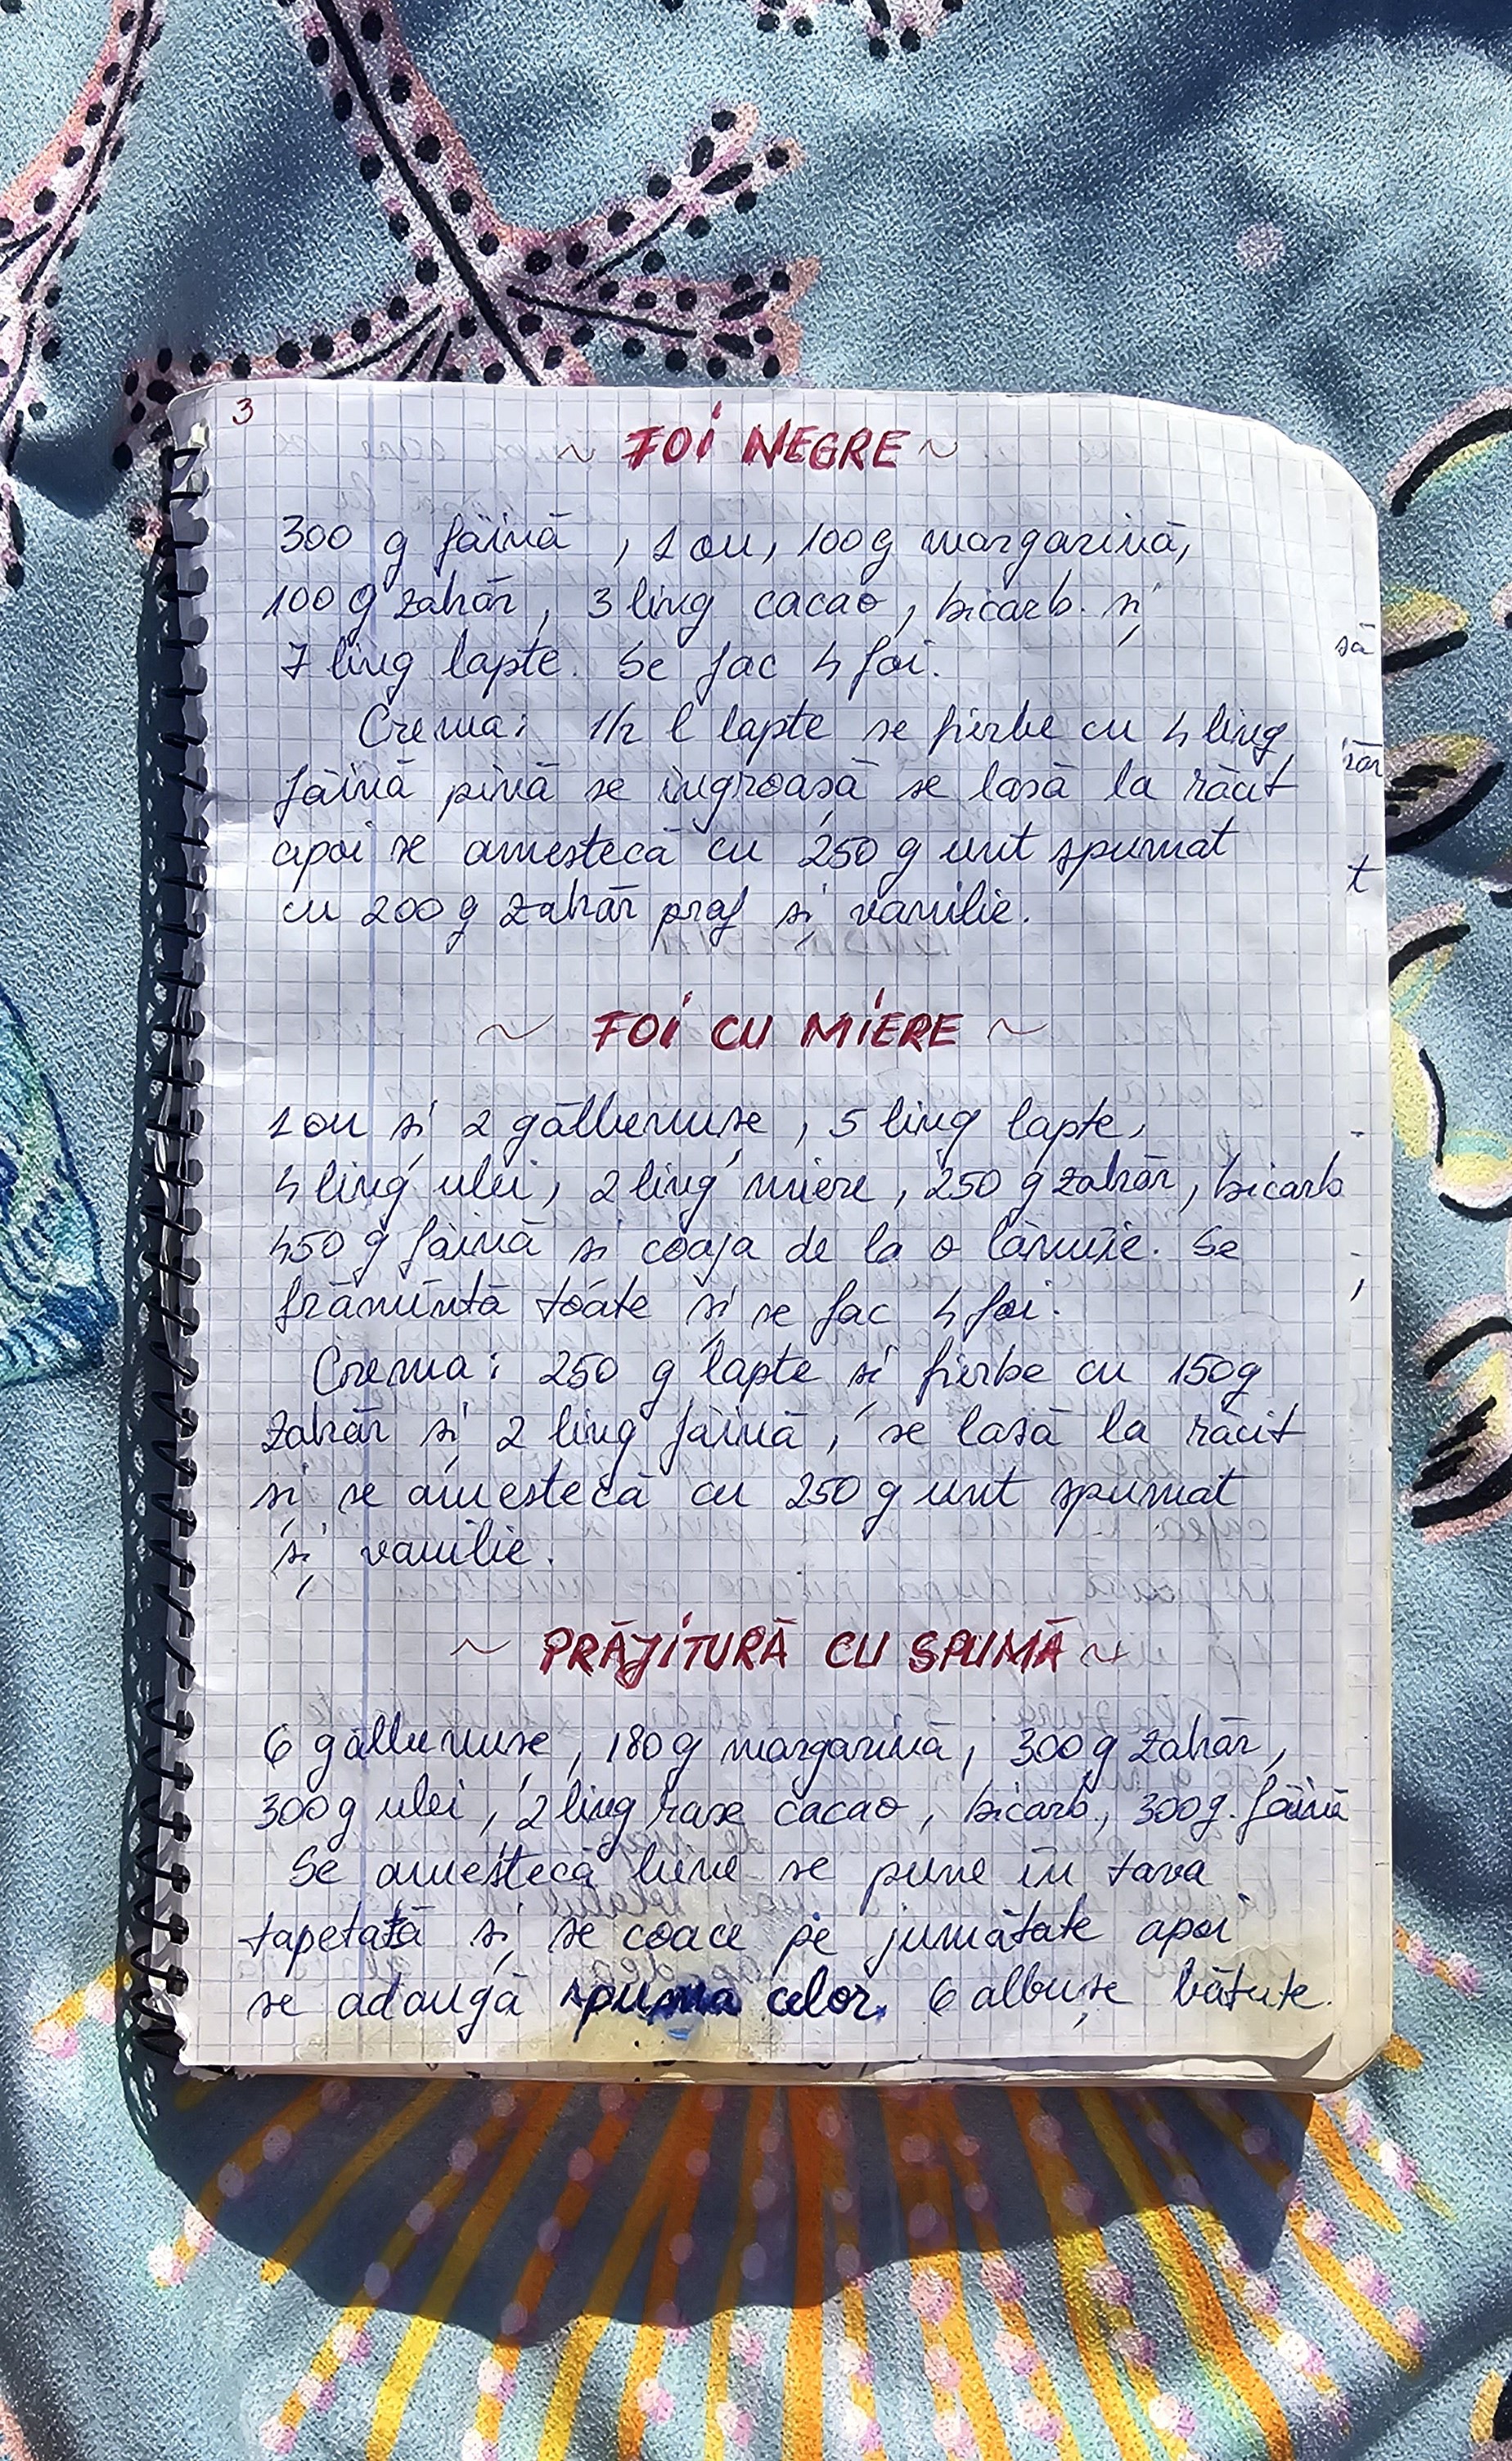 3
~ FOI NEGRE ~
300 g făină, 1 ou, 100 g margarină,
100 g zahăr, 3 ling cacao, bicarb. și
7 ling lapte. Se fac 4 foi.
Crema: 1/2 l lapte se fierbe cu 4 ling
făină pînă se îngroașă se lasă la răcit
apoi se amestecă cu 250 g unt spumat
cu 200 g zahăr praf și vanilie.
~ FOI CU MIERE ~
1 ou și 2 gălbenușe, 5 ling lapte,
4 ling ulei, 2 ling miere, 250 g zahăr, bicarb
450 g făină și coaja de la o lămîie. Se
frămîntă toate și se fac 4 foi.
Crema: 250 g lapte și fierbe cu 150g
zahăr și 2 ling făină, se lasă la răcit
și se amestecă cu 250 g unt spumat
și vanilie.
~ PRĂJITURĂ CU SPUMĂ ~
6 gălbenușe, 180 g margarină, 300 g zahăr,
300 g ulei, 2 ling rase cacao, bicarb, 300 g. făină
Se amestecă bine se pune în tava
tapetată și se coace pe jumătate apoi
se adaugă spuma celor 6 albușe bătute.
să
t